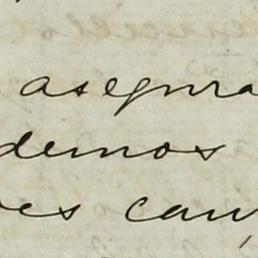 asegura
demos
es cau